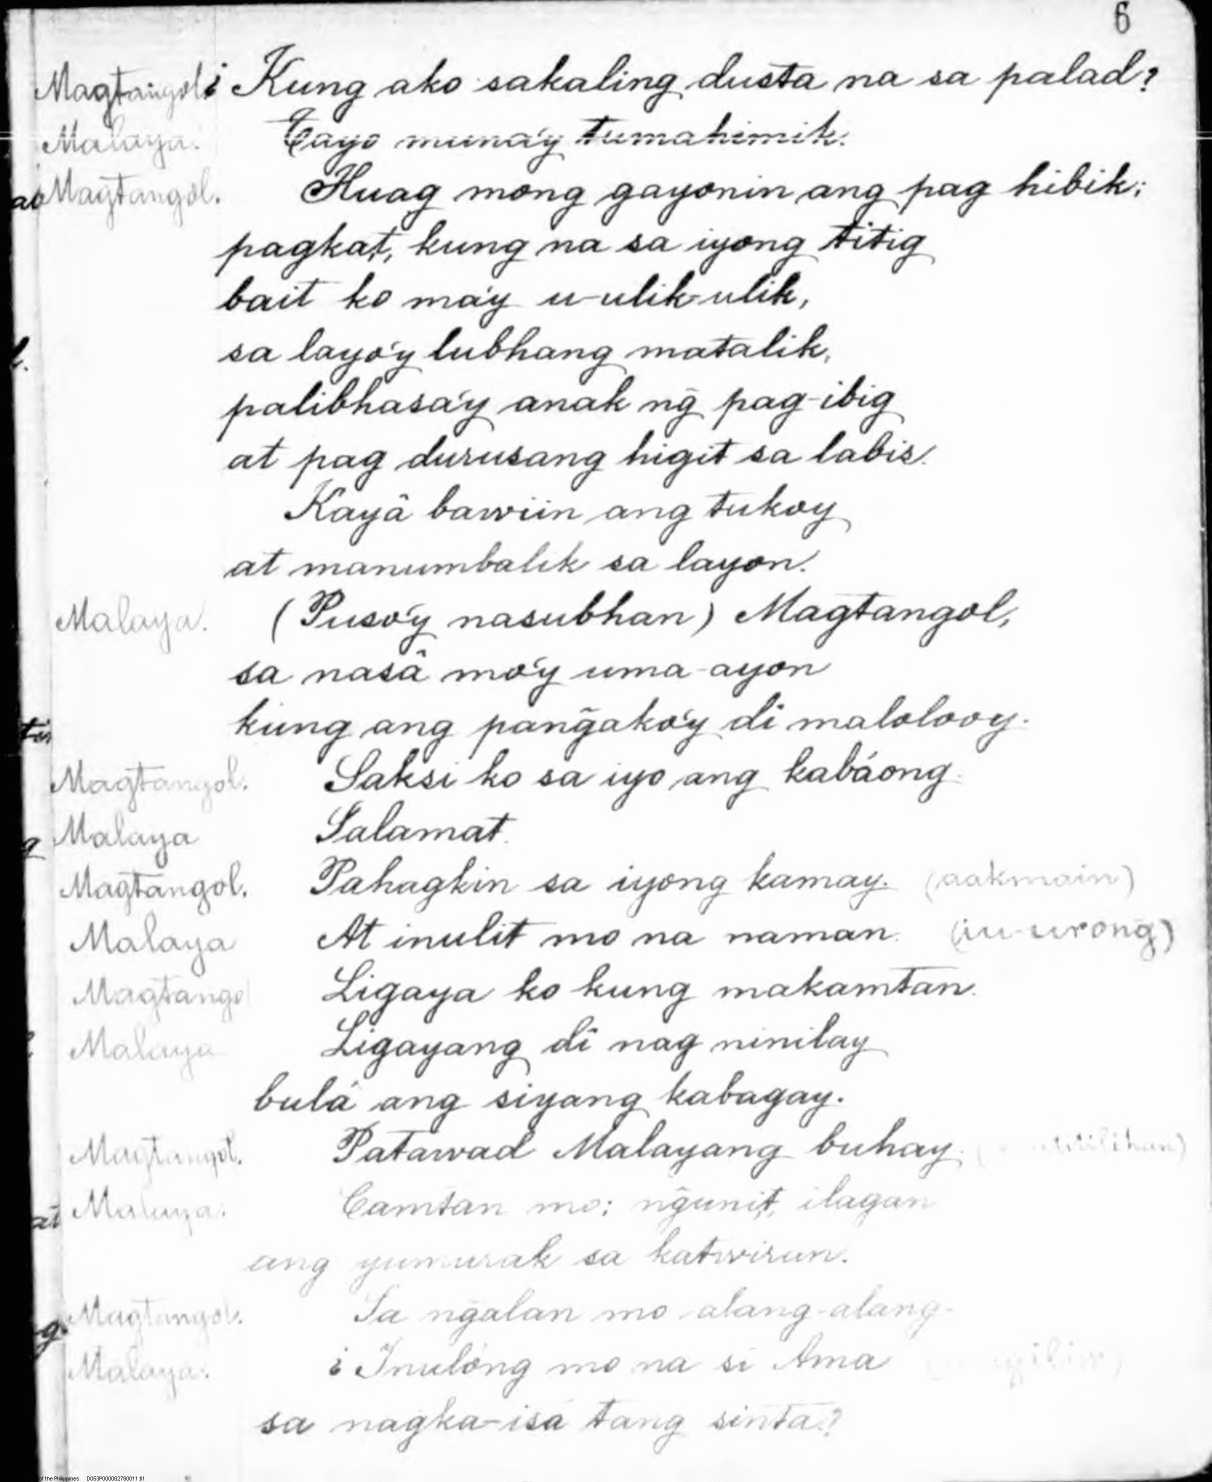 6
Magtangol. ¿Kung ako sakaling dusta na sa palad?
Malaya. Tayo muna'y tumahimik.
Magtangol. Huag mong gayonin ang pag hibik;
pagkat, kung na sa iyong titig
bait ko ma'y u-ulik-ulik,
sa layo'y lubhang matalik,
palibhasa'y anak ng̃ pag-ibig
at pag durusang higit sa labis.
Kayâ bawiin ang tukoy
at manumbalik sa layon.
Malaya. (Puso'y nasubhan) Magtangol,
sa nasâ mo'y uma-ayon
kung ang pang̃ako'y di malolooy.
Magtangol. Saksi ko sa iyo ang kabáong.
Malaya Salamat.
Magtangol. Pahagkin sa iyong kamay. (aakmain)
Malaya At inulit mo na naman. (iu-urong)
Magtangol Ligaya ko kung makamtan.
Malaya Ligayang dî nag ninilay
bulá ang siyang kabagay.
Magtangol. Patawad Malayang buhay.
Malaya. Camtan mo; ng̃unit, ilagan
ang yumurak sa katwiran.
Magtangol. Sa ng̃alan mo alang-alang.
Malaya. ¿Inulóng mo na si Ama
sa nagka-isá tang sinta?
of the Philippines